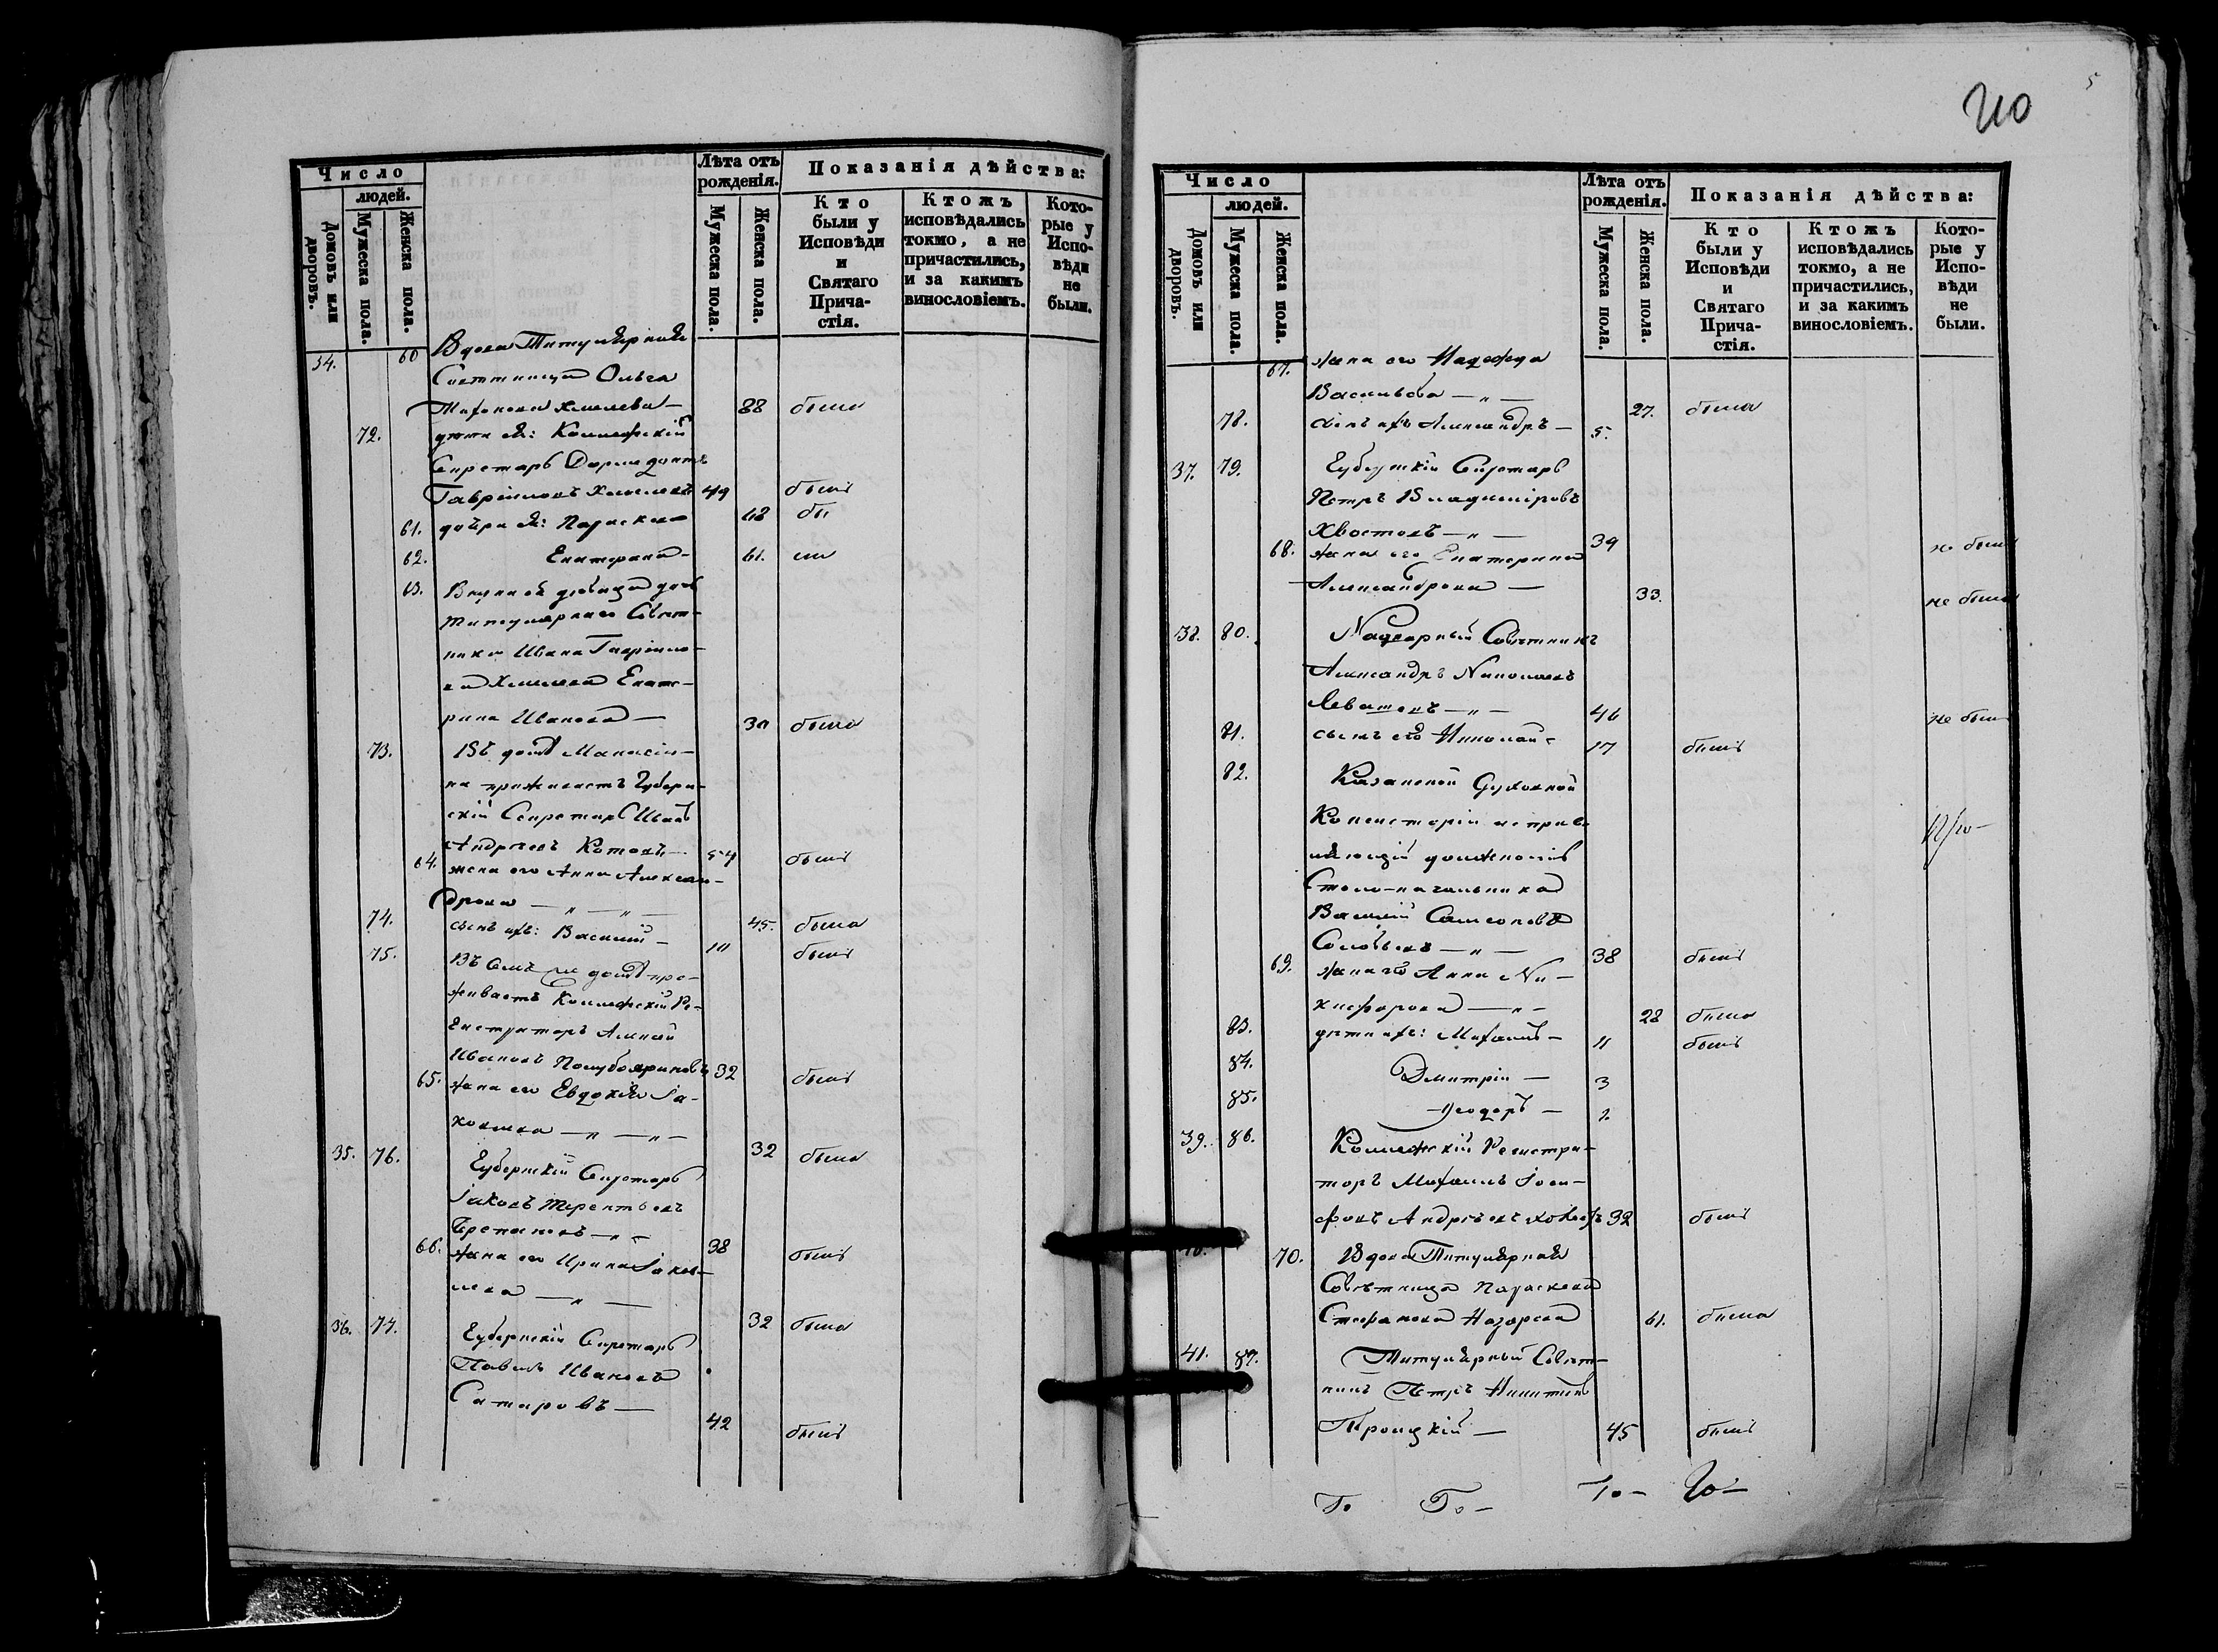 210
5
Число
людей.
Домовъ или дворовъ.
Мужеска пола.
Женска пола.
Лѣта отъ рожденія.
Мужеска пола.
Женска пола.
Показанія дѣйства:
Кто были у Исповѣди и Святаго Причастія.
Ктожъ исповѣдались токмо, а не причастились, и за какимъ винословіемъ.
Которые у Исповѣди не были.
34. 60 Вдова Титулярная
Совѣтница Ольга
88 была
72. дѣти ея: Коллежскій
Секретарь Доримедонтъ
Гавриловъ 49 былъ
61. дочери ея: Параскева 68 бы
62. Екатерина - 61. ли
63. Внука ея девица дочь
Титулярнаго Совѣт-
ника Ивана Гаврило-
ва Хмелева Екате-
рина Иванова — 30 была
73. Въ домѣ
на проживаетъ Губерн-
скій Секретарь Иванъ
Андреевъ Котовъ — 54 былъ
64. жена его Анна Алексан-
дрова — „ — „ — 45. была
74. сынъ ихъ: Василій — былъ
75. Въ семъ же домѣ про-
живаетъ Коллежскій Ре-
гистраторъ Алексѣй
Ивановъ Полубояриновъ 32 былъ
65. жена его Евдокія Іа-
ковлева — „ — „ — 32 была
35. 76. Губернскій Секретарь
Іаковъ Терентьевъ
— „ — 38 былъ
66. жена его Ирина Іаков-
лева — „ — 32 была
36. 77. Губернскій Секретарь
Павелъ Ивановъ
Сатаровъ — 42 былъ
Число
людей.
Домовъ или дворовъ.
Мужеска пола.
Женска пола.
Лѣта отъ рожденія.
Мужеска пола.
Женска пола.
Показанія дѣйства:
Кто были у Исповѣди и Святаго Причастія.
Ктожъ исповѣдались токмо, а не причастились, и за какимъ винословіемъ.
Которые у Исповѣди не были.
67. жена его Надежда
Васильева — „ — 27. была
78. сынъ ихъ Александръ — 5.
37. 79. Губернскій Секретарь
Петръ Владиміровъ
Хвостовъ — „ — 39 не былъ
68. жена его Екатерина
Александрова — 33. не была
38. 80. Надворный Совѣтникъ
Александръ Николаевъ
Левашевъ — „ — 46 не былъ
81. сынъ его Николай - 17 былъ
82. Казанской Духовной
Консисторіи исправ-
ляющій должность
Столо-начальника
Василій Самсоновъ
Соловьевъ — „ — 38 былъ
69. жена его Анна Ни-
кифорова — „ — 28 была
83. дѣти ихъ: Михаилъ — 11 былъ
84. Димитрій — 3
85. Ѳеодоръ — 2
39. 86. Коллежскій Регистра-
торъ Михаилъ Іоси-
фовъ 32 былъ
70. Вдова Титулярная
Совѣтница Параскева
Стефанова Назарева 61. была
41. 87. Титулярный Совѣт-
никъ Петръ Никитинъ
Троицкій — 45 былъ